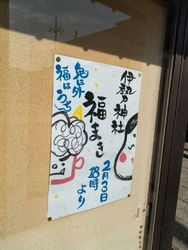 伊勢乃神社
福まき
鬼は外
福はうち
2月3日
18時
より